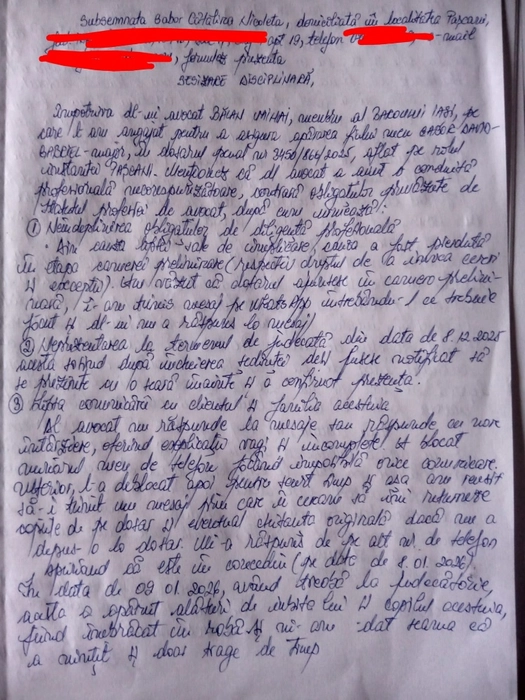 Subsemnata Babor Cătălina Nicoleta, domiciliată în localitatea Pașcani,
apt 19, telefon mail
formulez prezenta
SESIZARE DISCIPLINARĂ,
Împotriva dl-ui avocat MIHAI, membru al BAROULUI IAȘI, pe
care l-am angajat pentru a asigura apărarea fiului meu BABOR DAVID-
GABRIEL-major, în dosarul penal nr 3450/866/2025, aflat pe rolul
instanței PAȘCANI. Menționez că dl avocat a avut o conduită
profesională necorespunzătoare, contrară obligațiilor prevăzute de
Statutul profesiei de avocat, după cum urmează:
① Neîndeplinirea obligațiilor de diligență profesională
• Din cauza lipsei sale de implicare, cauza a fost pierdută
în etapa camerei preliminare (respectiv dreptul de a invoca cereri
și excepții). Am văzut că dosarul ajunsese în camera prelimi-
nară, i-am trimis mesaj pe WhatsApp întrebându-l ce trebuie
făcut și dl-ui nu a răspuns la mesaj.
② Neprezentarea la termenul de judecată din data de 8.12.2025
acesta sosind după încheierea ședinței deși fusese notificat să
se prezinte cu o seară înainte și a confirmat prezența.
③ Lipsa comunicării cu clientul și familia acestuia
Dl avocat nu răspunde la mesaje sau răspunde cu mare
întârziere, oferind explicații vagi și incomplete. A blocat
numărul meu de telefon făcând imposibilă orice comunicare.
Ulterior, l-a deblocat apoi pentru scurt timp și așa am reușit
să-i trimit un mesaj prin care îi ceream să îmi returneze
copiile de pe dosar și eventual chitanța originală dacă nu a
depus-o la dosar. Mi-a răspuns de pe alt nr. de telefon
spunând că este în concediu (pe data de 8.01.2026).
În data de 09 01.2026, având treabă la judecătorie,
acesta a apărut alături de iubita lui și copilul acesteia,
fiind îmbrăcat în robă și mi-am dat seama că
a mințit și doar trage de timp